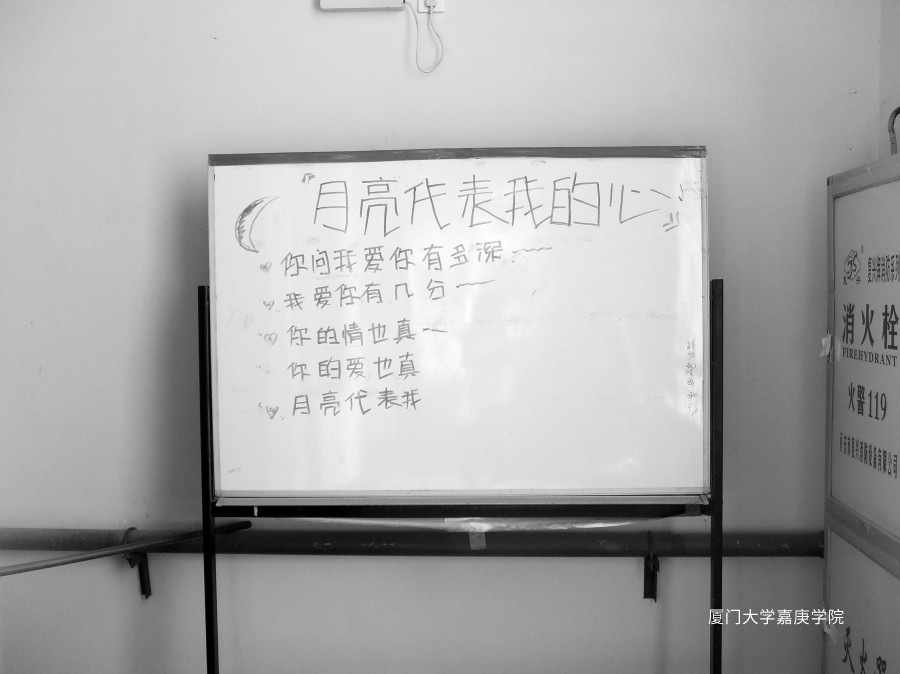 『月亮代表我的心』
你问我爱你有多深
我爱你有几分
你的情也真
你的爱也真
月亮代表我
复兴牌消防系列
消火栓
FIREHYDRANT
火警119
灭火器
厦门大学嘉庚学院